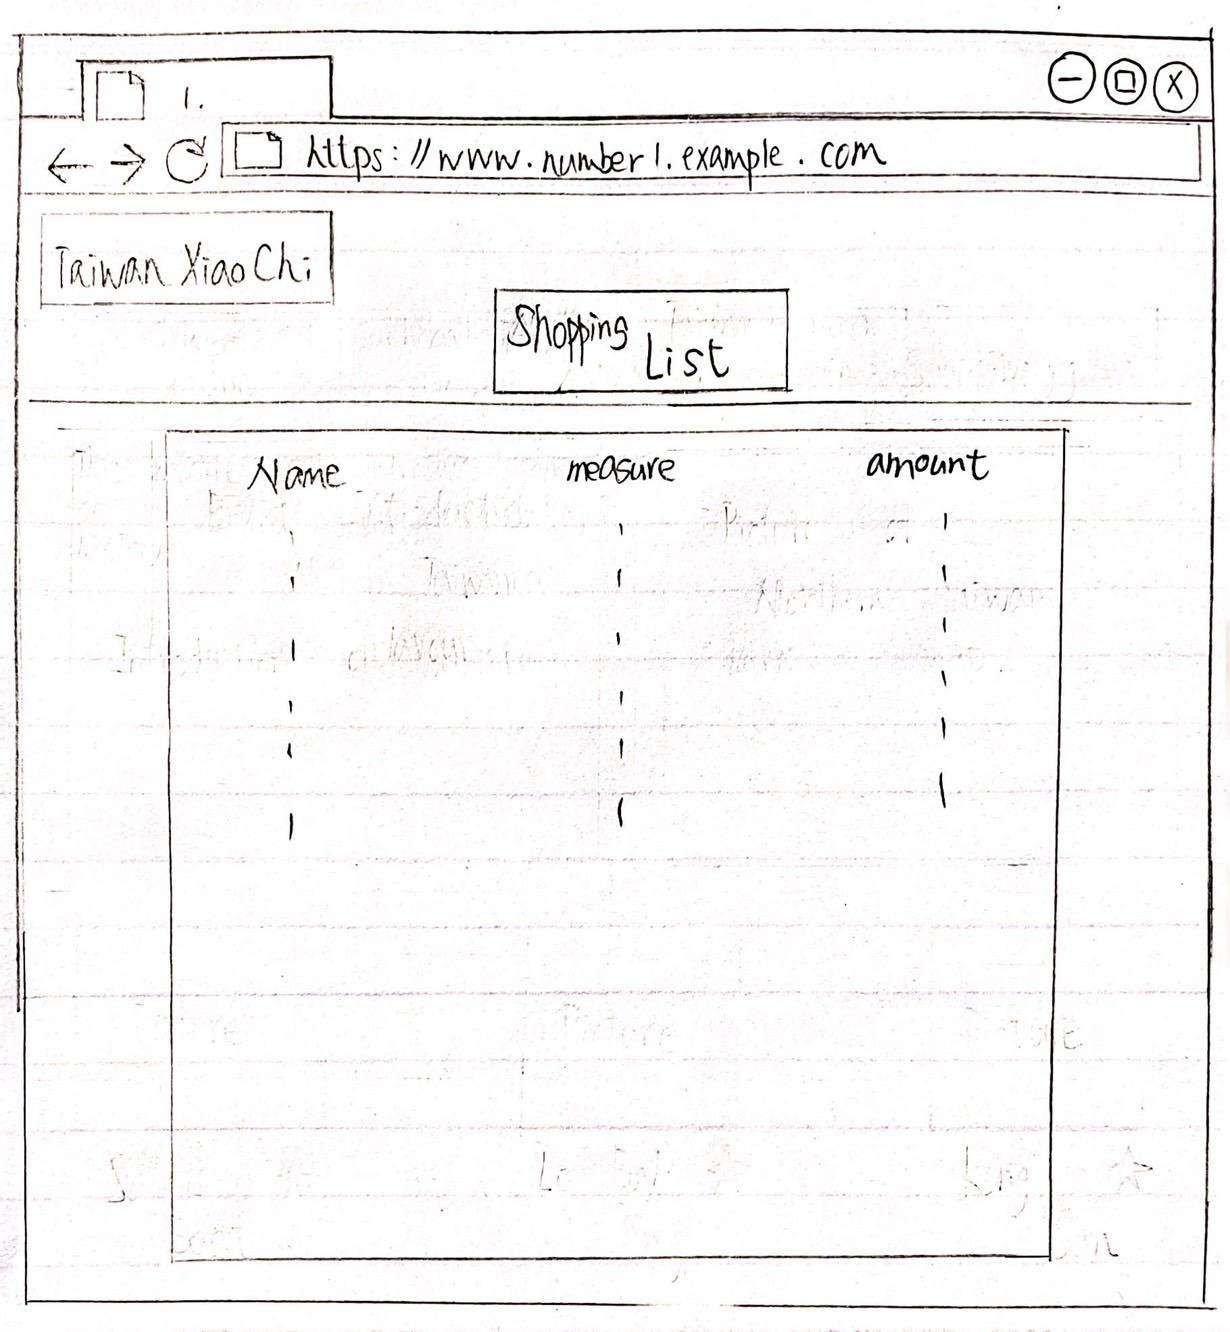 1.
https://www.number1.example.com
Taiwan XiaoChi
Shopping
List
Name measure amount